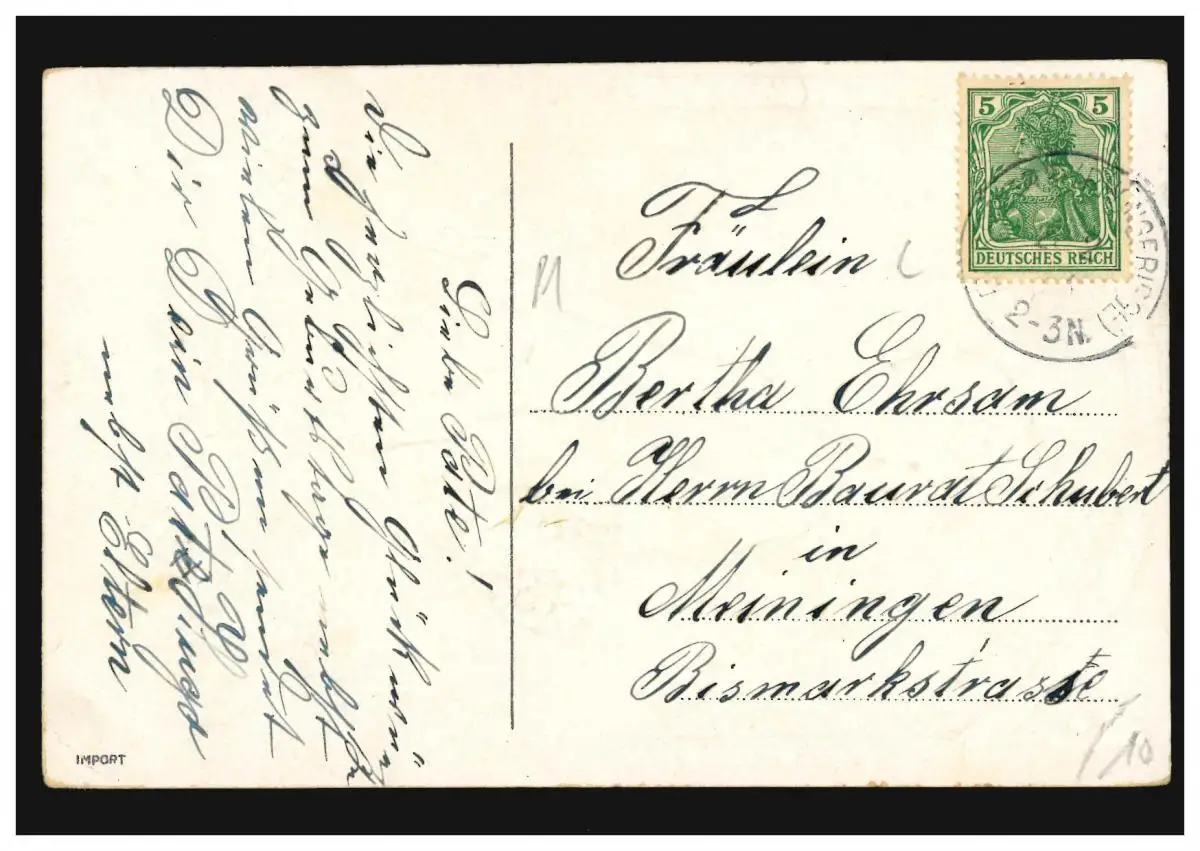 Liebe Pate!
Die herzlichsten Glückwün
zum Geburtstage nebst
vielen Grüßen sendet
Dir Dein Patzjunge
nebst Eltern
IMPORT
5 5
DEUTSCHES REICH
2-3N.
Fräulein
Bertha Ehrsam
bei Herrn Baurat Schubert
in
Meiningen
Bismarkstrasse
10